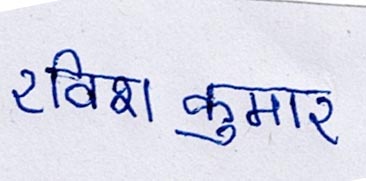 रविश कुमार